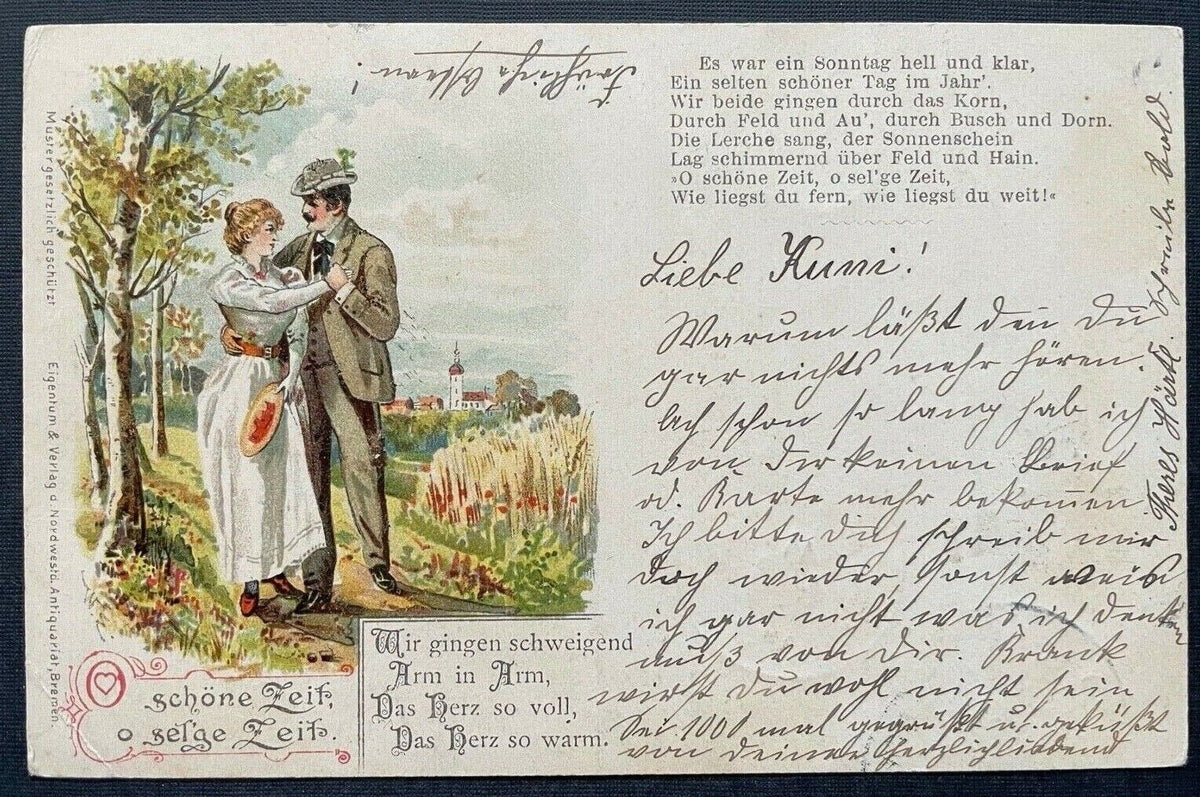 Fröhliche Ostern!
Es war ein Sonntag hell und klar,
Ein selten schöner Tag im Jahr'.
Wir beide gingen durch das Korn,
Durch Feld und Au', durch Busch und Dorn.
Die Lerche sang, der Sonnenschein
Lag schimmernd über Feld und Hain.
»O schöne Zeit, o sel'ge Zeit,
Wie liegst du fern, wie liegst du weit!«
Liebe Kuni!
Warum läßt den du
gar nichts mehr hören.
Ach schon so lang hab ich
von Dir keinen Brief
od. Karte mehr bekommen.
Ich bitte Dich schreib mir
doch wieder, sonst weis
ich gar nicht was ich denken
muß von Dir. Krank
wirst Du wohl nicht sein
Sei 1000 mal gegrüßt u. geküßt
von deiner herzlichliebend
Theres Härtl. Schreibe bald.
Wir gingen schweigend
Arm in Arm,
Das Herz so voll,
Das Herz so warm.
O schöne Zeit,
o sel'ge Zeit.
Muster gesetzlich geschützt
Eigentum & Verlag d. Nordwestd. Antiquariat, Bremen.